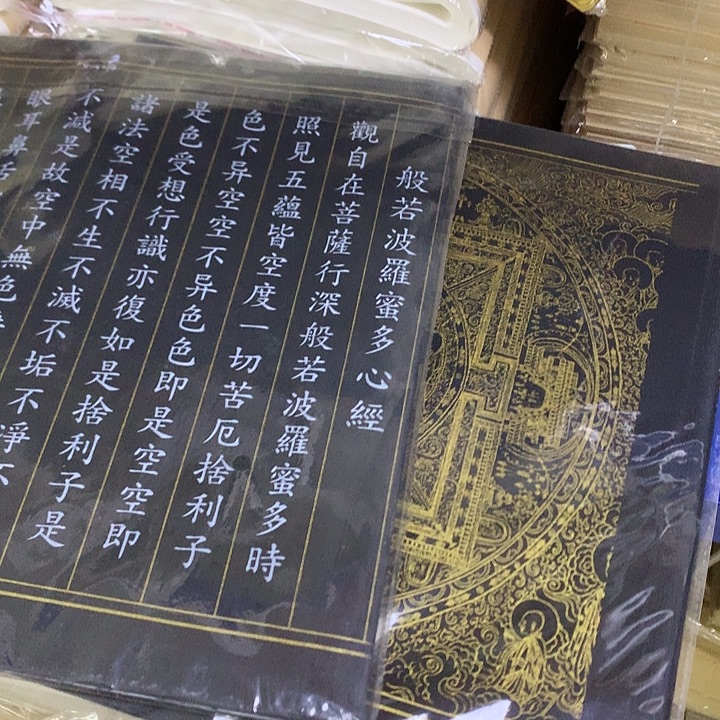 般若波羅蜜多心經
觀自在菩薩行深般若波羅蜜多時
照見五蘊皆空度一切苦厄捨利子
色不异空空不异色色即是空空即
是色受想行識亦復如是捨利子是
諸法空相不生不滅不垢不淨不
不滅是故空中無色
眼耳鼻舌